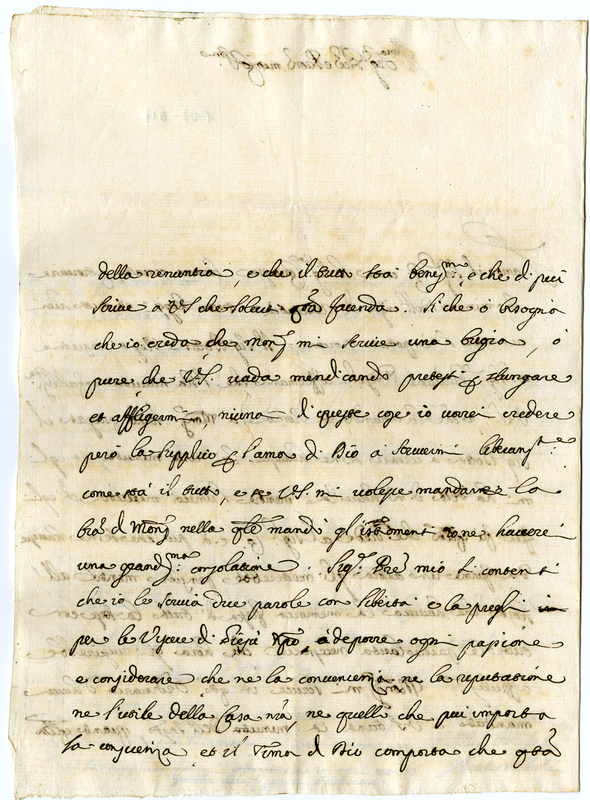 della renuntia, e che il tutto stà beniss.mo: e che di più
scrive a V.S. che solleciti q.sta facenda. Si che ò bisogna
che io creda, che Mons.r mi scrive una bugia, ò
pure che V.S. vada mendicando pretesti p slungare
et affligermi niuna di queste cose io vorrei credere
però la supplico p l'amor di Dio à scrivermi
come stà il tutto, e se V.S. mi volesse mandare la
di Mons.r nella q.le mandò gl' ne haverei
una grand.ma consolatione. Sig.r P.re mio si contenti
che io le scriva due parole con libertà e la preghi
per le Viscere di Giesù Xpo, à deporre ogni passione
e considerare che ne la convenienza ne la reputatione
ne l'utile della Casa n.ra, ne quelli che più importa
la conscienza et il Timor di Dio comporta che q.sta